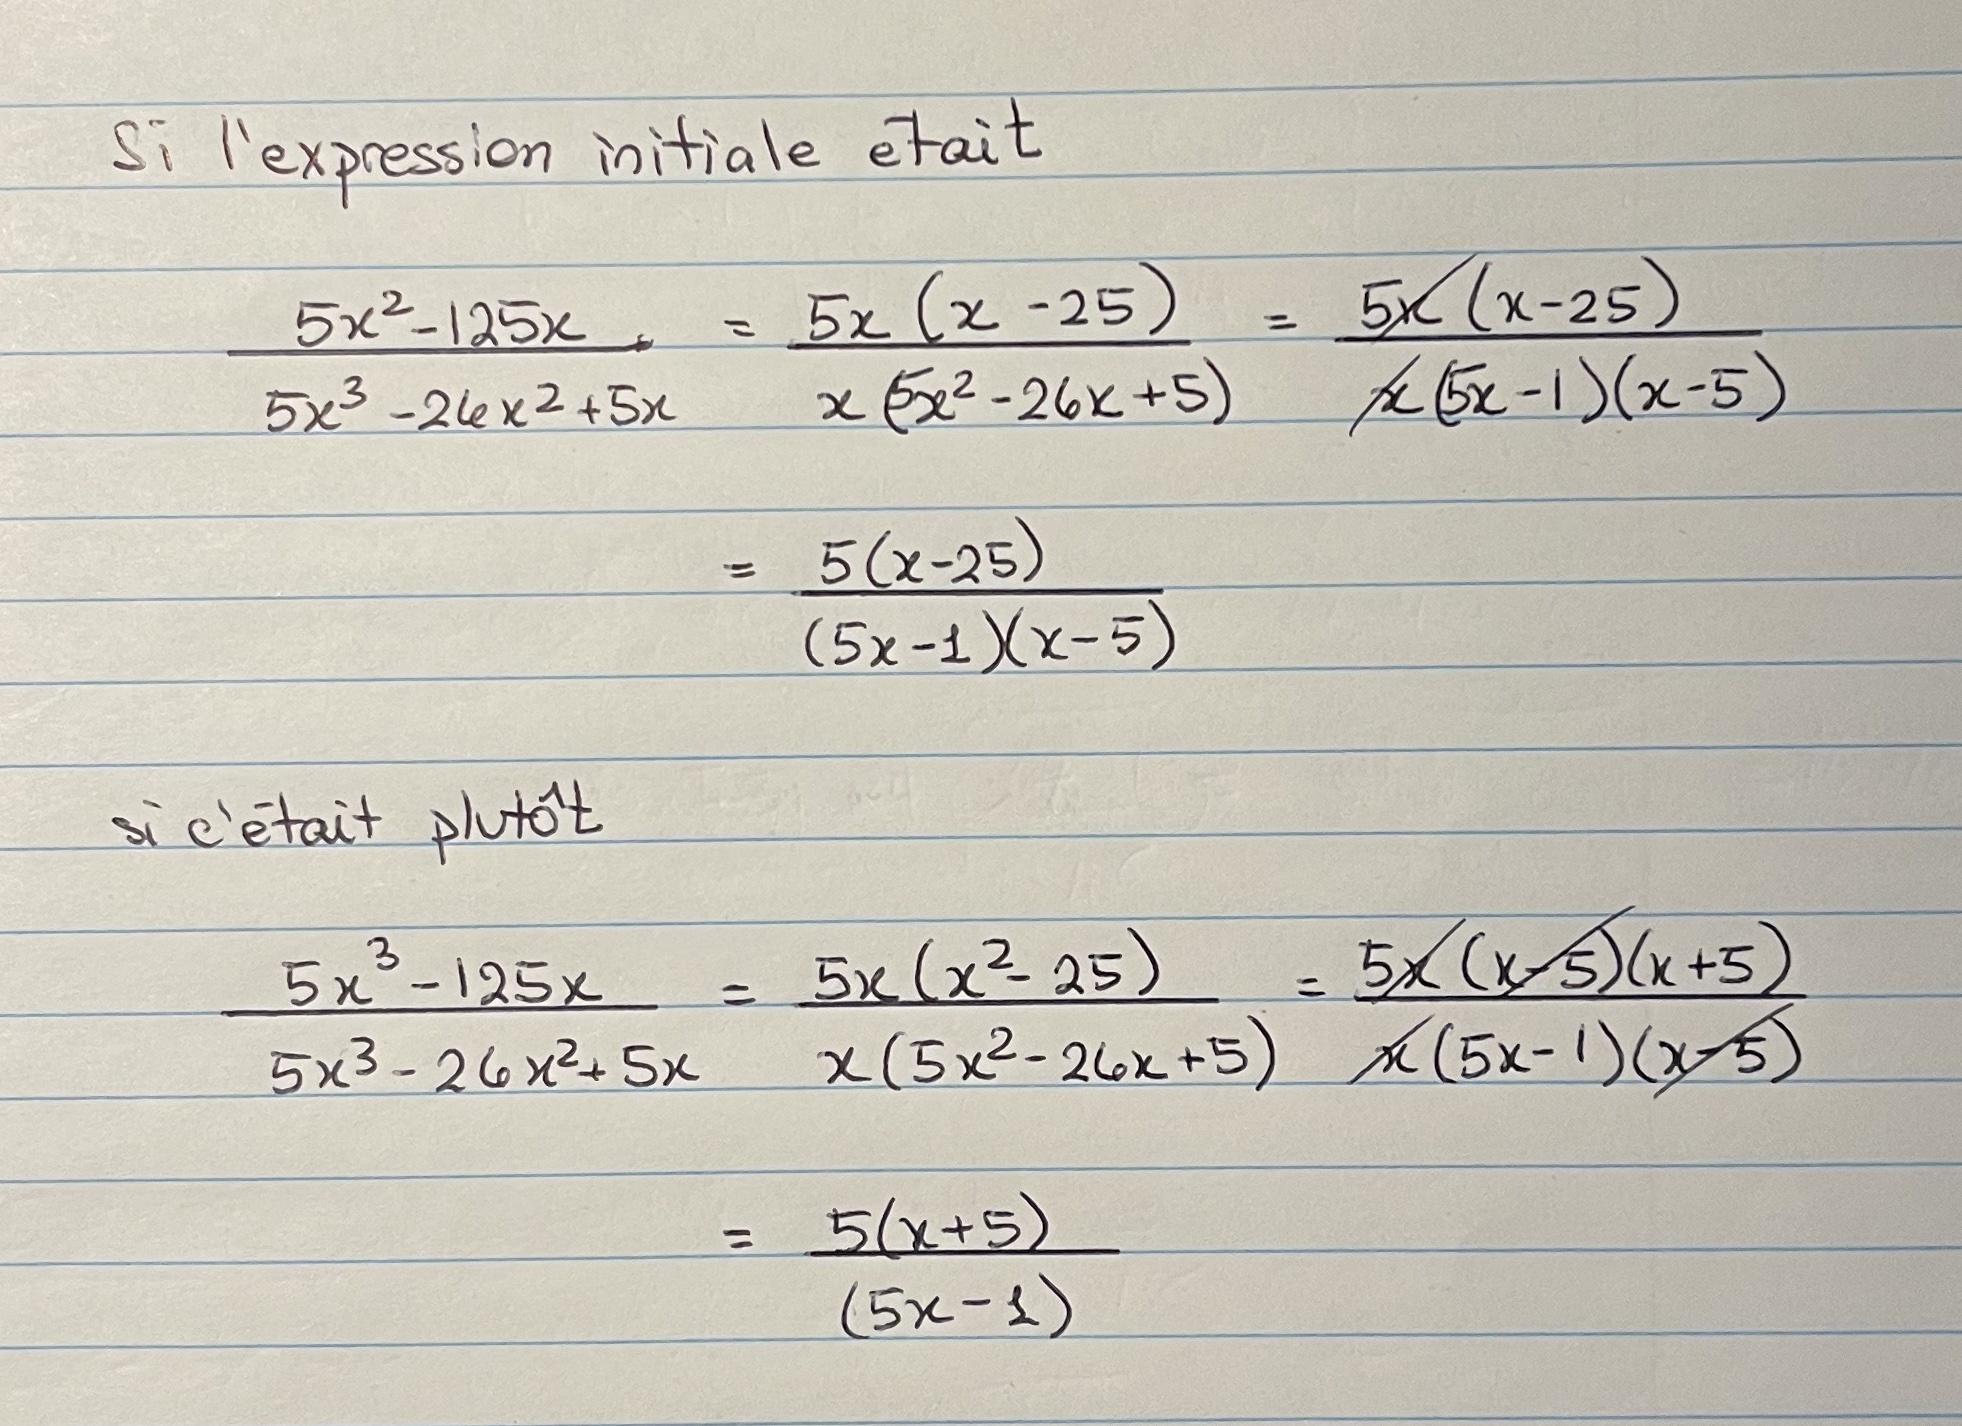 Si l'expression initiale était
5x²-125x / 5x³-26x²+5x = 5x(x-25) / x(5x²-26x+5) = 5x(x-25) / x(5x-1)(x-5)
= 5(x-25) / (5x-1)(x-5)
si c'était plutôt
5x³-125x / 5x³-26x²+5x = 5x(x²-25) / x(5x²-26x+5) = 5x(x-5)(x+5) / x(5x-1)(x-5)
= 5(x+5) / (5x-1)